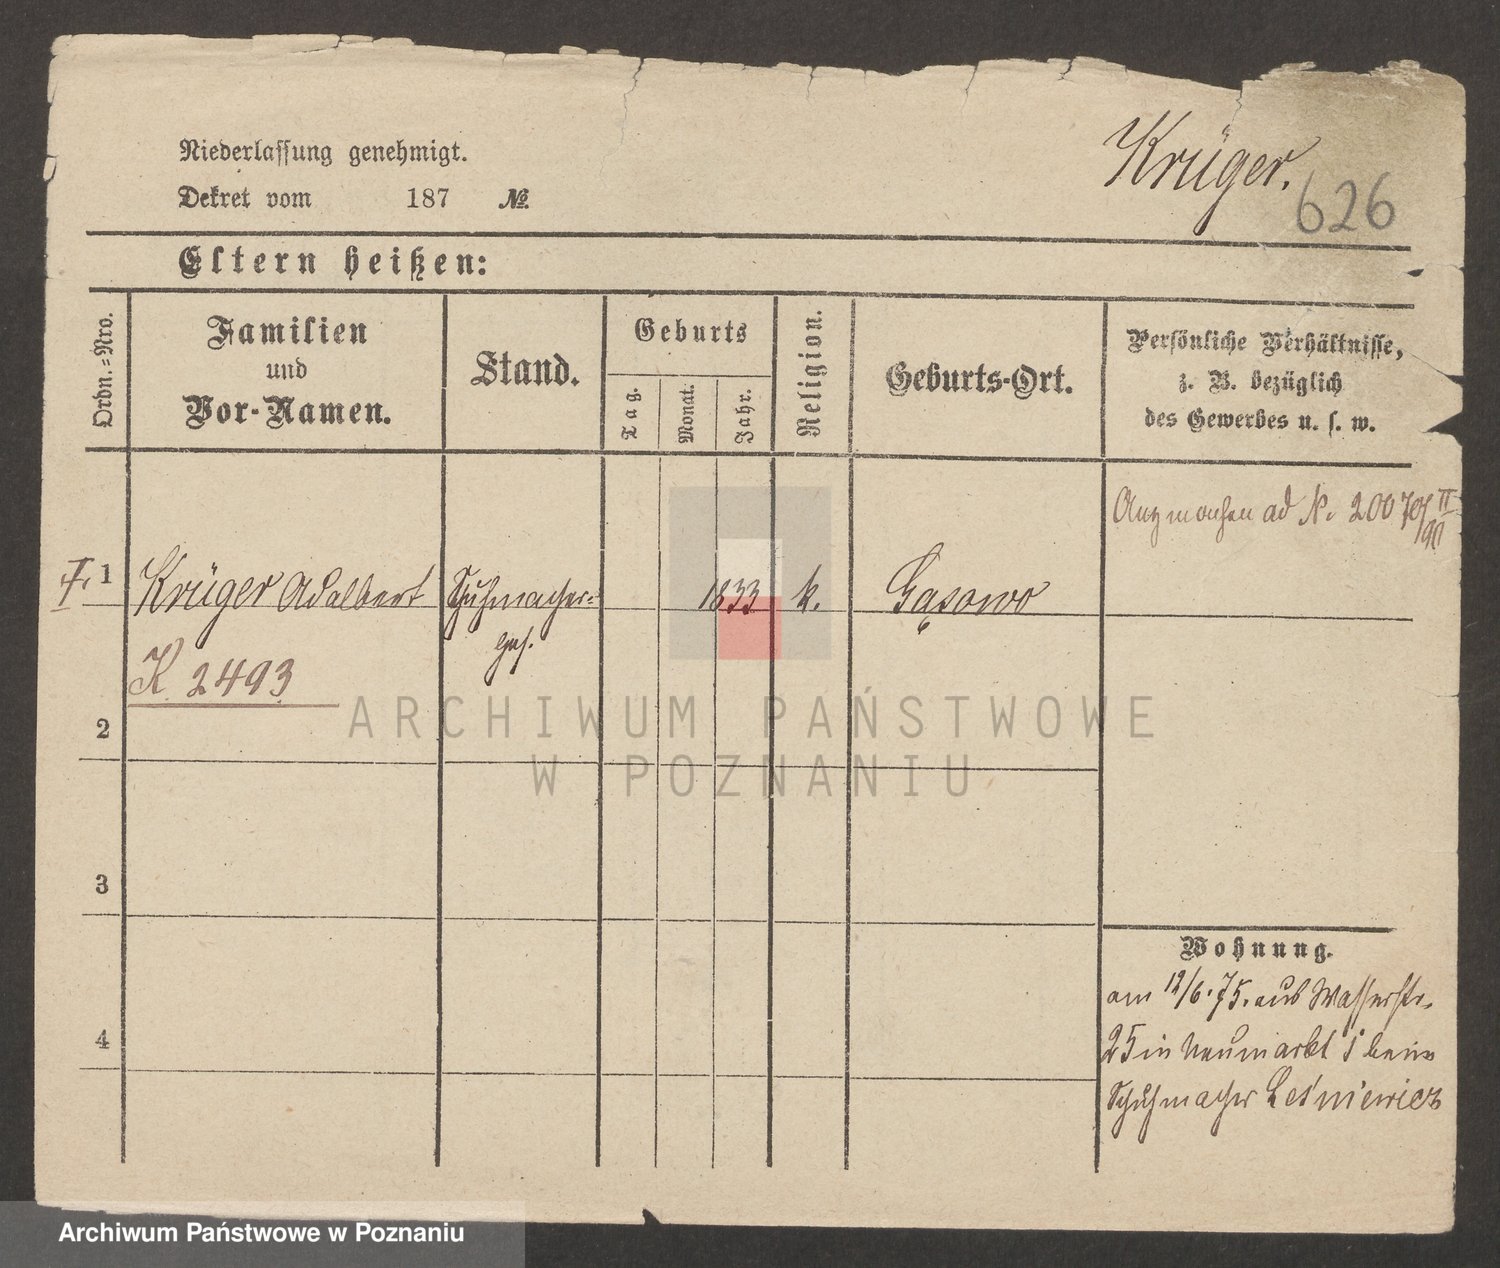 Niederlassung genehmigt.
Krüger.
Dekret vom 187 №.
626
Eltern heißen:
Ordn.-Nro.
Familien
und
Vor-Namen.
Stand.
Geburts
Tag.
Monat.
Jahr.
Religion.
Geburts-Ort.
Persönliche Verhältnisse,
z. B. bezüglich
des Gewerbes u. s. w.
ad N. 20070/II 90
1 Krüger Adalbert Schuhmacher-
ges.
1833 k. Gąsowo
K 2493
2
3
4
Wohnung.
am 12/6. 75. aus Wasserstr.
25 in Neumarkt 1 beim
Schuhmacher Leśniewicz
ARCHIWUM PAŃSTWOWE
W POZNANIU
Archiwum Państwowe w Poznaniu